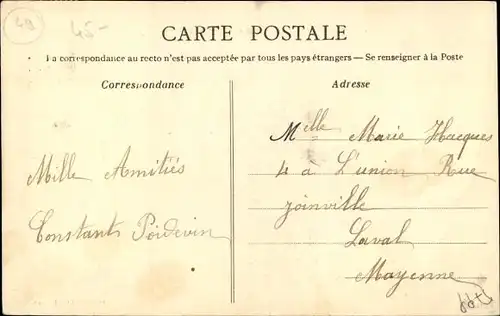 49
45-
CARTE POSTALE
La correspondance au recto n'est pas acceptée par tous les pays étrangers — Se renseigner à la Poste
Correspondance
Adresse
Mille Amitiés
Constant Poidevin
Melle Marie Hacques
4 à L'union Rue
joinville
Laval
Mayenne